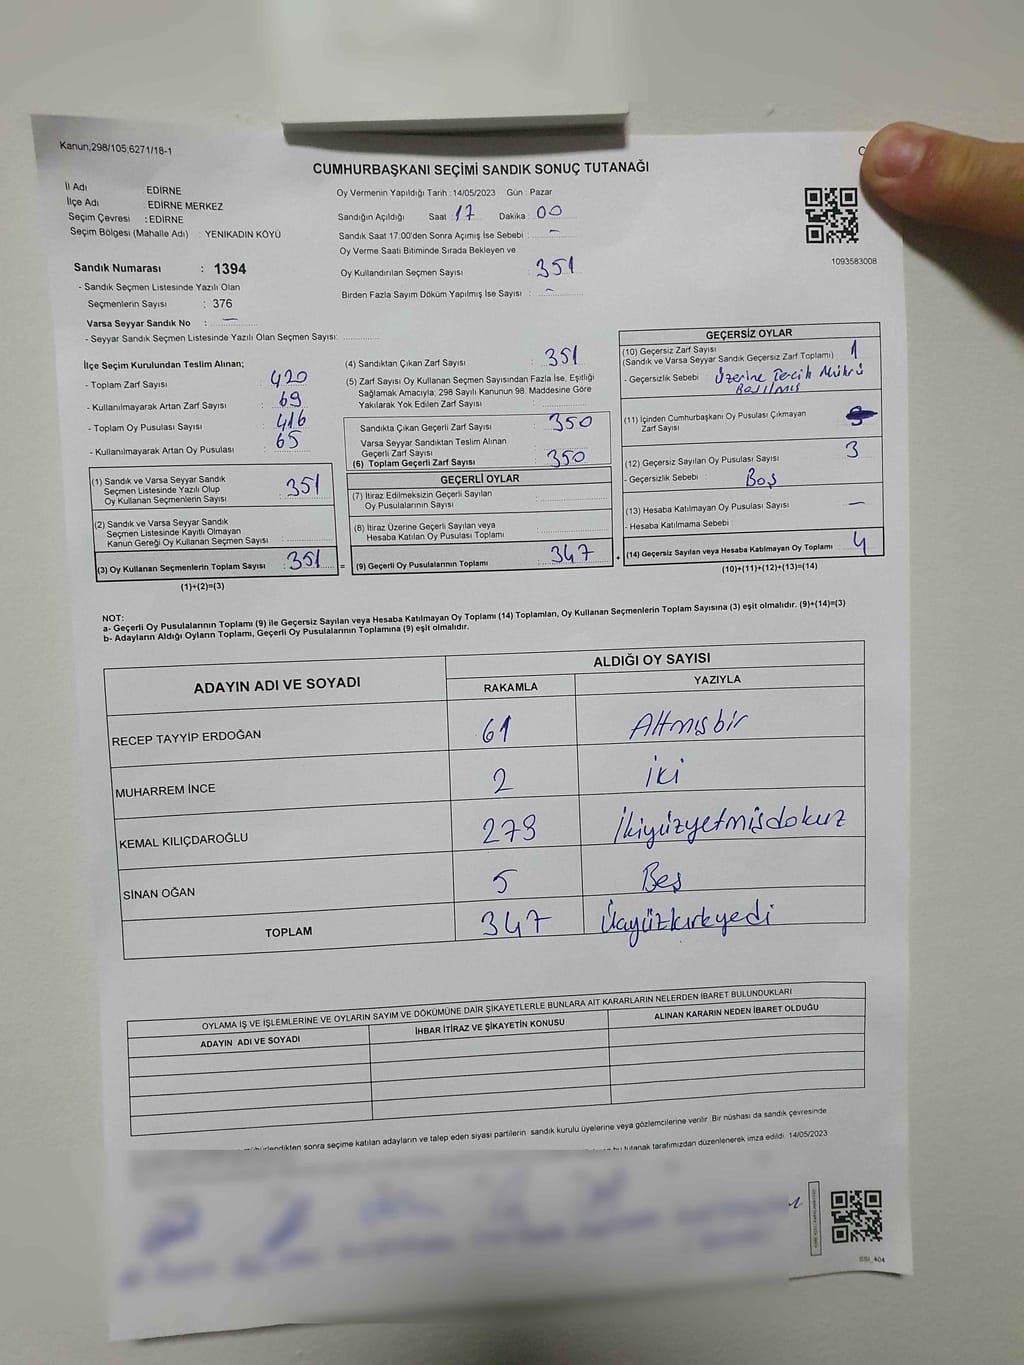 Kanun;298/105,6271/18-1
CUMHURBAŞKANI SEÇİMİ SANDIK SONUÇ TUTANAĞI
İl Adı : EDİRNE
İlçe Adı : EDİRNE MERKEZ
Seçim Çevresi : EDİRNE
Seçim Bölgesi (Mahalle Adı) : YENİKADIN KÖYÜ
Sandık Numarası : 1394
- Sandık Seçmen Listesinde Yazılı Olan
Seçmenlerin Sayısı : 376
Varsa Seyyar Sandık No : –
- Seyyar Sandık Seçmen Listesinde Yazılı Olan Seçmen Sayısı:
Oy Vermenin Yapıldığı Tarih : 14/05/2023 Gün : Pazar
Sandığın Açıldığı Saat 17 Dakika : 00
Sandık Saat 17:00'den Sonra Açımış İse Sebebi : –
Oy Verme Saati Bitiminde Sırada Bekleyen ve
Oy Kullandırılan Seçmen Sayısı 351
Birden Fazla Sayım Döküm Yapılmış İse Sayısı : –
1093583008
İlçe Seçim Kurulundan Teslim Alınan;
- Toplam Zarf Sayısı : 420
- Kullanılmayarak Artan Zarf Sayısı : 69
- Toplam Oy Pusulası Sayısı : 416
- Kullanılmayarak Artan Oy Pusulası : 65
(1) Sandık ve Varsa Seyyar Sandık
Seçmen Listesinde Yazılı Olup
Oy Kullanan Seçmenlerin Sayısı : 351
(2) Sandık ve Varsa Seyyar Sandık
Seçmen Listesinde Kayıtlı Olmayan
Kanun Gereği Oy Kullanan Seçmen Sayısı :
(3) Oy Kullanan Seçmenlerin Toplam Sayısı : 351 =
(1)+(2)=(3)
(4) Sandıktan Çıkan Zarf Sayısı : 351
(5) Zarf Sayısı Oy Kullanan Seçmen Sayısından Fazla İse, Eşitliği
Sağlamak Amacıyla; 298 Sayılı Kanunun 98. Maddesine Göre
Yakılarak Yok Edilen Zarf Sayısı :
Sandıkta Çıkan Geçerli Zarf Sayısı : 350
Varsa Seyyar Sandıktan Teslim Alınan
Geçerli Zarf Sayısı
(6) Toplam Geçerli Zarf Sayısı : 350
GEÇERLİ OYLAR
(7) İtiraz Edilmeksizin Geçerli Sayılan
Oy Pusulalarının Sayısı :
(8) İtiraz Üzerine Geçerli Sayılan veya
Hesaba Katılan Oy Pusulası Toplamı :
(9) Geçerli Oy Pusulalarının Toplamı : 347 +
GEÇERSİZ OYLAR
(10) Geçersiz Zarf Sayısı
(Sandık ve Varsa Seyyar Sandık Geçersiz Zarf Toplamı) : 1
- Geçersizlik Sebebi : Üzerine Tercih Mührü
Basılmış
(11) İçinden Cumhurbaşkanı Oy Pusulası Çıkmayan
Zarf Sayısı
(12) Geçersiz Sayılan Oy Pusulası Sayısı : 3
- Geçersizlik Sebebi : Boş
(13) Hesaba Katılmayan Oy Pusulası Sayısı : –
- Hesaba Katılmama Sebebi :
(14) Geçersiz Sayılan veya Hesaba Katılmayan Oy Toplamı : 4
(10)+(11)+(12)+(13)=(14)
NOT:
a- Geçerli Oy Pusulalarının Toplamı (9) ile Geçersiz Sayılan veya Hesaba Katılmayan Oy Toplamı (14) Toplamları, Oy Kullanan Seçmenlerin Toplam Sayısına (3) eşit olmalıdır. (9)+(14)=(3)
b- Adayların Aldığı Oyların Toplamı, Geçerli Oy Pusulalarının Toplamına (9) eşit olmalıdır.
ADAYIN ADI VE SOYADI ALDIĞI OY SAYISI
RAKAMLA YAZIYLA
RECEP TAYYİP ERDOĞAN 61 Altmışbir
MUHARREM İNCE 2 iki
KEMAL KILIÇDAROĞLU 279 İkiyüzyetmişdokuz
SİNAN OĞAN 5 Beş
TOPLAM 347 Üçyüzkırkyedi
OYLAMA İŞ VE İŞLEMLERİNE VE OYLARIN SAYIM VE DÖKÜMÜNE DAİR ŞİKAYETLERLE BUNLARA AİT KARARLARIN NELERDEN İBARET BULUNDUKLARI
ADAYIN ADI VE SOYADI İHBAR İTİRAZ VE ŞİKAYETİN KONUSU ALINAN KARARIN NEDEN İBARET OLDUĞU
sonra seçime katılan adayların ve talep eden siyasi partilerin sandık kurulu üyelerine veya gözlemcilerine verilir. Bir nüshası da sandık çevresinde
bu tutanak tarafımızdan düzenlenerek imza edildi. 14/05/2023
SSİ_404